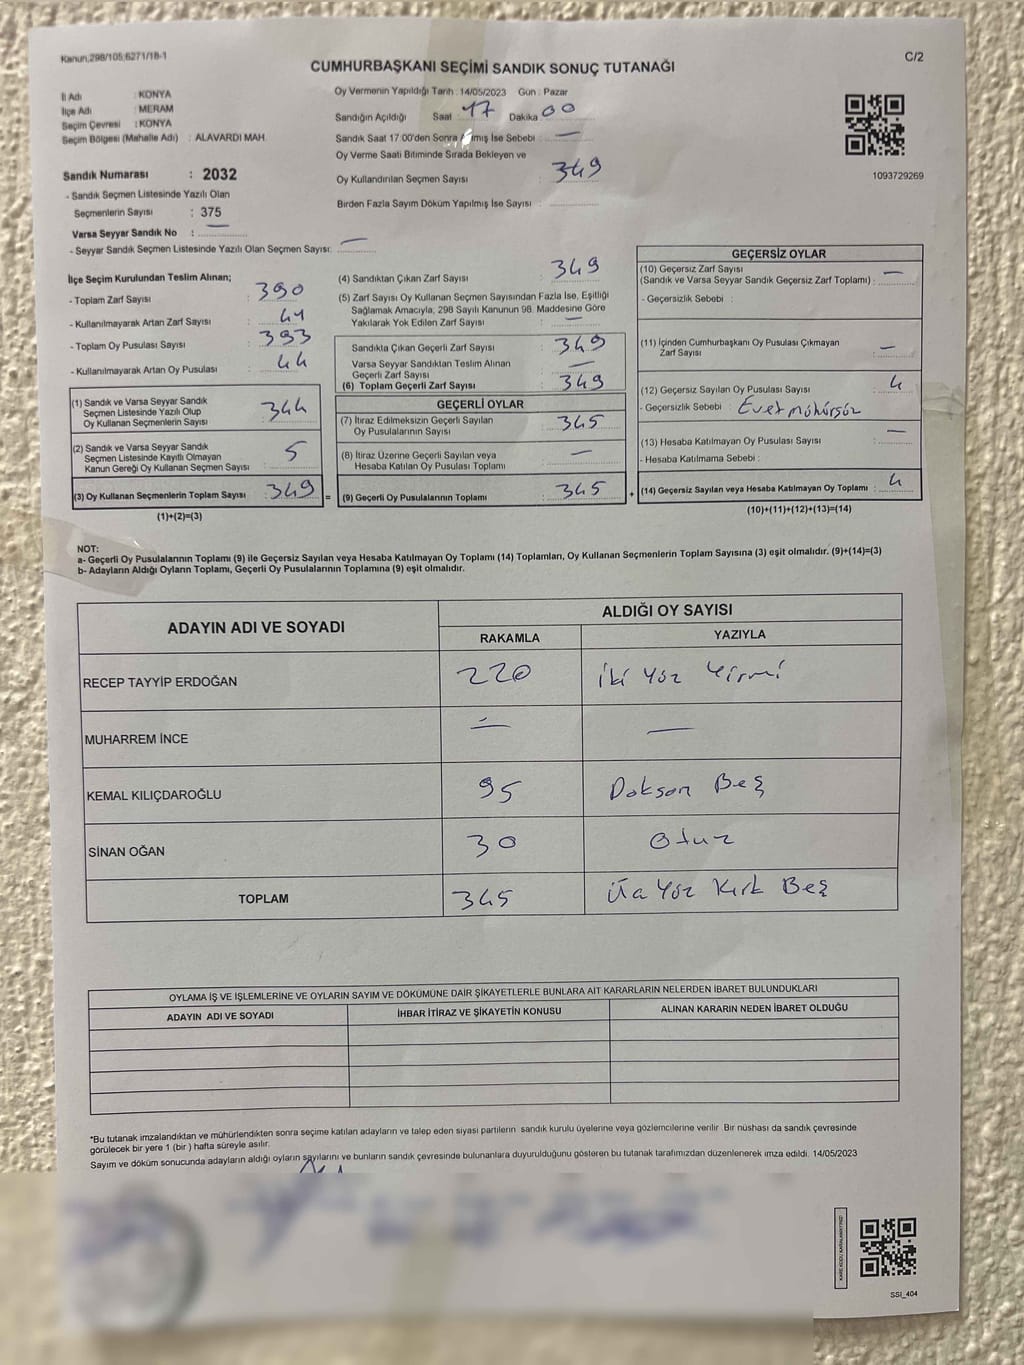 Kanun;298/105;6271/18-1
C/2
CUMHURBAŞKANI SEÇİMİ SANDIK SONUÇ TUTANAĞI
İl Adı : KONYA
İlçe Adı : MERAM
Seçim Çevresi : KONYA
Seçim Bölgesi (Mahalle Adı) : ALAVARDI MAH.
Oy Vermenin Yapıldığı Tarih : 14/05/2023 Gün : Pazar
Sandığın Açıldığı Saat 17 Dakika 00
Sandık Saat 17:00'den Sonra mış İse Sebebi : —
Oy Verme Saati Bitiminde Sırada Bekleyen ve
Oy Kullandırılan Seçmen Sayısı : 349
Birden Fazla Sayım Döküm Yapılmış İse Sayısı :
1093729269
Sandık Numarası : 2032
- Sandık Seçmen Listesinde Yazılı Olan
Seçmenlerin Sayısı : 375
Varsa Seyyar Sandık No : —
- Seyyar Sandık Seçmen Listesinde Yazılı Olan Seçmen Sayısı: —
İlçe Seçim Kurulundan Teslim Alınan;
- Toplam Zarf Sayısı : 390
- Kullanılmayarak Artan Zarf Sayısı : 41
- Toplam Oy Pusulası Sayısı : 393
- Kullanılmayarak Artan Oy Pusulası : 44
(1) Sandık ve Varsa Seyyar Sandık
Seçmen Listesinde Yazılı Olup
Oy Kullanan Seçmenlerin Sayısı : 344
(2) Sandık ve Varsa Seyyar Sandık
Seçmen Listesinde Kayıtlı Olmayan
Kanun Gereği Oy Kullanan Seçmen Sayısı : 5
(3) Oy Kullanan Seçmenlerin Toplam Sayısı : 349 =
(1)+(2)=(3)
(4) Sandıktan Çıkan Zarf Sayısı : 349
(5) Zarf Sayısı Oy Kullanan Seçmen Sayısından Fazla İse, Eşitliği
Sağlamak Amacıyla, 298 Sayılı Kanunun 98. Maddesine Göre
Yakılarak Yok Edilen Zarf Sayısı : —
Sandıkta Çıkan Geçerli Zarf Sayısı : 349
Varsa Seyyar Sandıktan Teslim Alınan
Geçerli Zarf Sayısı : —
(6) Toplam Geçerli Zarf Sayısı : 349
GEÇERLİ OYLAR
(7) İtiraz Edilmeksizin Geçerli Sayılan
Oy Pusulalarının Sayısı : 345
(8) İtiraz Üzerine Geçerli Sayılan veya
Hesaba Katılan Oy Pusulası Toplamı : —
(9) Geçerli Oy Pusulalarının Toplamı : 345 +
GEÇERSİZ OYLAR
(10) Geçersiz Zarf Sayısı
(Sandık ve Varsa Seyyar Sandık Geçersiz Zarf Toplamı) : —
- Geçersizlik Sebebi :
(11) İçinden Cumhurbaşkanı Oy Pusulası Çıkmayan
Zarf Sayısı : —
(12) Geçersiz Sayılan Oy Pusulası Sayısı : 4
- Geçersizlik Sebebi : Evet mühürsüz
(13) Hesaba Katılmayan Oy Pusulası Sayısı : —
- Hesaba Katılmama Sebebi :
(14) Geçersiz Sayılan veya Hesaba Katılmayan Oy Toplamı : 4
(10)+(11)+(12)+(13)=(14)
NOT:
a- Geçerli Oy Pusulalarının Toplamı (9) ile Geçersiz Sayılan veya Hesaba Katılmayan Oy Toplamı (14) Toplamları, Oy Kullanan Seçmenlerin Toplam Sayısına (3) eşit olmalıdır. (9)+(14)=(3)
b- Adayların Aldığı Oyların Toplamı, Geçerli Oy Pusulalarının Toplamına (9) eşit olmalıdır.
ADAYIN ADI VE SOYADI ALDIĞI OY SAYISI
RAKAMLA YAZIYLA
RECEP TAYYİP ERDOĞAN 220 İki Yüz Yirmi
MUHARREM İNCE — —
KEMAL KILIÇDAROĞLU 95 Doksan Beş
SİNAN OĞAN 30 Otuz
TOPLAM 345 Üç Yüz Kırk Beş
OYLAMA İŞ VE İŞLEMLERİNE VE OYLARIN SAYIM VE DÖKÜMÜNE DAİR ŞİKAYETLERLE BUNLARA AİT KARARLARIN NELERDEN İBARET BULUNDUKLARI
ADAYIN ADI VE SOYADI İHBAR İTİRAZ VE ŞİKAYETİN KONUSU ALINAN KARARIN NEDEN İBARET OLDUĞU
*Bu tutanak imzalandıktan ve mühürlendikten sonra seçime katılan adayların ve talep eden siyasi partilerin sandık kurulu üyelerine veya gözlemcilerine verilir. Bir nüshası da sandık çevresinde
görülecek bir yere 1 (bir ) hafta süreyle asılır.
Sayım ve döküm sonucunda adayların aldığı oyların sayılarını ve bunların sandık çevresinde bulunanlara duyurulduğunu gösteren bu tutanak tarafımızdan düzenlenerek imza edildi. 14/05/2023
KARE KODU KARALAMAYINIZ!
SSI_404